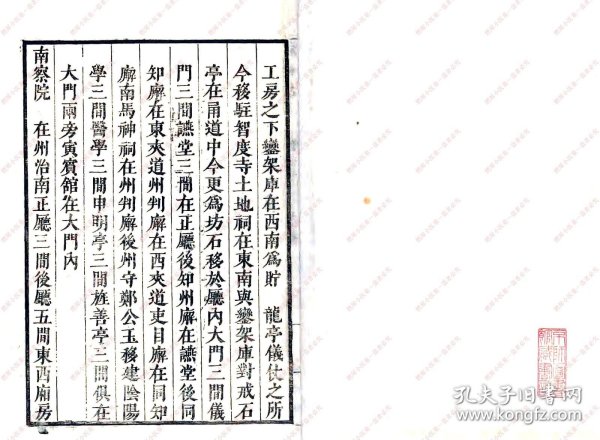 工房之下鑾架庫在西南爲貯 龍亭儀仗之所
今移駐智度寺土地祠在東南與鑾架庫對戒石
亭在甬道中今更爲坊石移於廳內大門三間儀
門三間讌堂三間在正廳後知州廨在讌堂後同
知廨在東夾道州判廨在西夾道吏目廨在同知
廨南馬神祠在州判廨後州守鄭公玉移建陰陽
學三間醫學三間申明亭三間旌善亭三間俱在
大門兩旁寅賓館在大門內
南察院 在州治南正廳三間後廳五間東西廂房
孔夫子旧书网
www.kongfz.com